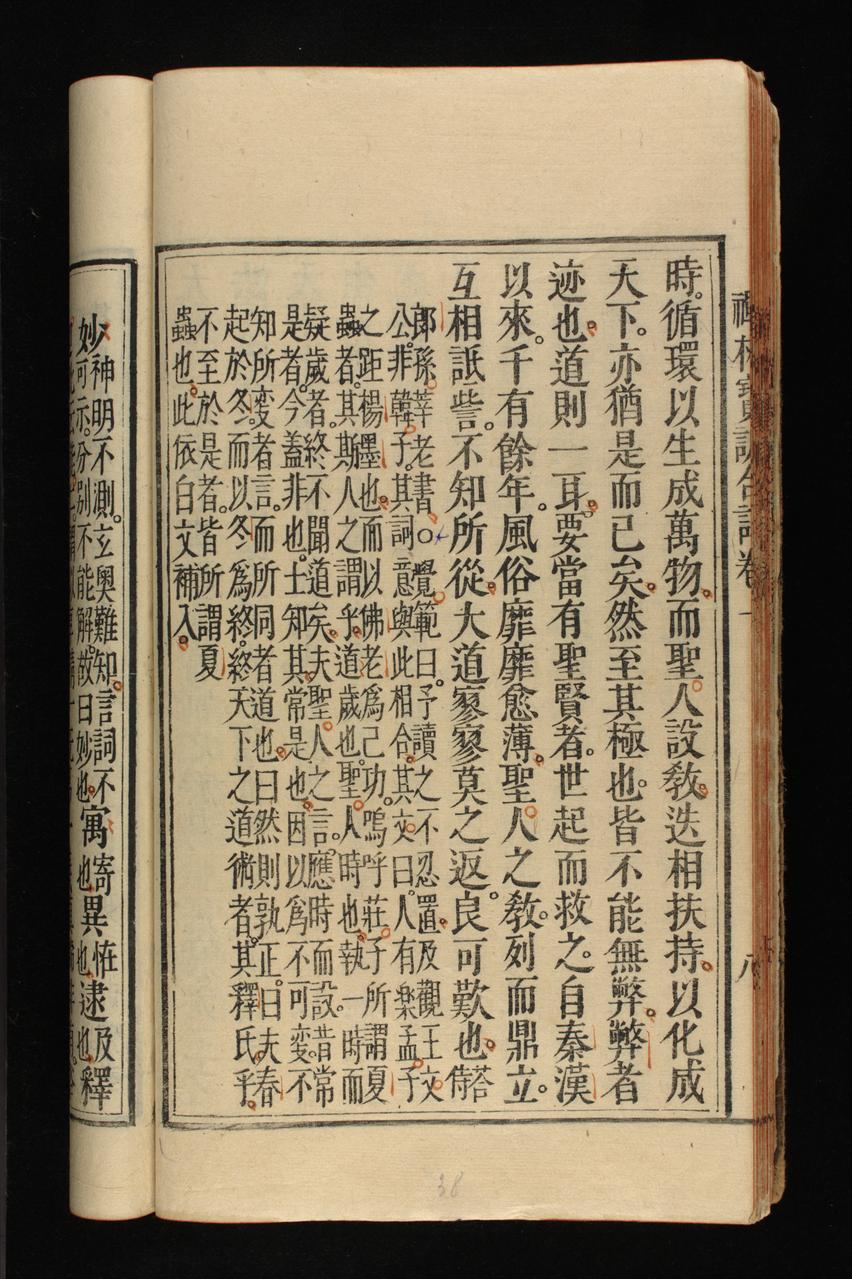 禪林寶訓合註卷一 八
時。循環以生成萬物。而聖人設教。迭相扶持。以化成
天下。亦猶是而已矣。然至其極也。皆不能無弊。弊者
迹也。道則一耳。要當有聖賢者。世起而救之。自秦漢
以來。千有餘年。風俗靡靡愈薄。聖人之教。列而鼎立。
互相詆訾。不知所從。大道寥寥莫之返。良可歎也。答侍
郎孫莘老書○覺範曰。予讀之不忍置。及觀王文
公非韓子。其詞意與此相合。其文曰。人有樂孟子
之距楊墨也。而以佛老爲己功。嗚呼。莊子所謂夏
蟲者。其斯人之謂乎。道歲也。聖人時也。執一時而
疑歲者。終不聞道矣。夫聖人之言。應時而設。昔常
是者。今蓋非也。士知其常是也。因以爲不可變。不
知所変者言。而所同者道也。曰然則孰正。曰夫春
起於冬。而以冬爲終。終天下之道術者。其釋氏乎。
不至於是者。皆所謂夏
蟲也。此依白文補入。
妙神明不測。玄奧難知。言詞不可示。分別不能解。故曰妙也。寓寄也異恠也逮及也釋
38